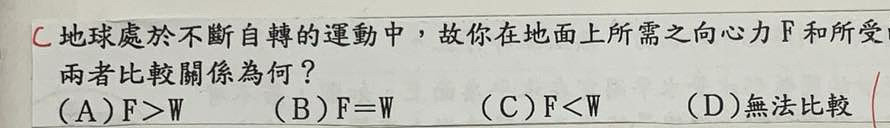 C 地球處於不斷自轉的運動中，故你在地面上所需之向心力F和所受
兩者比較關係為何？
(A)F>W (B)F=W (C)F<W (D)無法比較